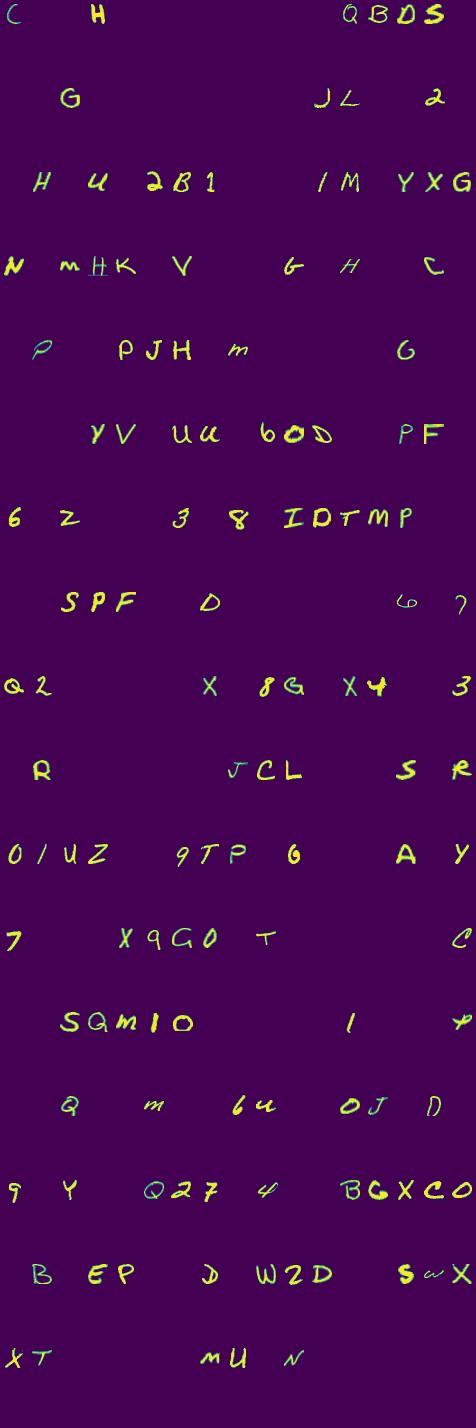 C H QBDS
G JL 2
H U 2B1 1M YXG
N mHK V G H C
P PJH m G
YV UU 60D PF
6 Z 3 8 IDTMP
SPF D 6 7
Q2 X 8G X4 3
R JCL S R
01UZ 9TP 6 A Y
7 X9G0 T C
SQM10 1 P
Q m 6U 0J D
9 Y Q27 4 BGXCO
B EP D WZD SwX
XT mU N